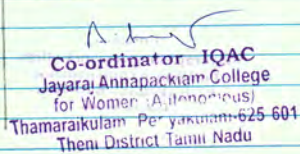 Co-ordinator IQAC
Jayaraj Annapackiam College
for Women (Autonomous)
Thamaraikulam Periyakulam-625 601
Theni District Tamil Nadu